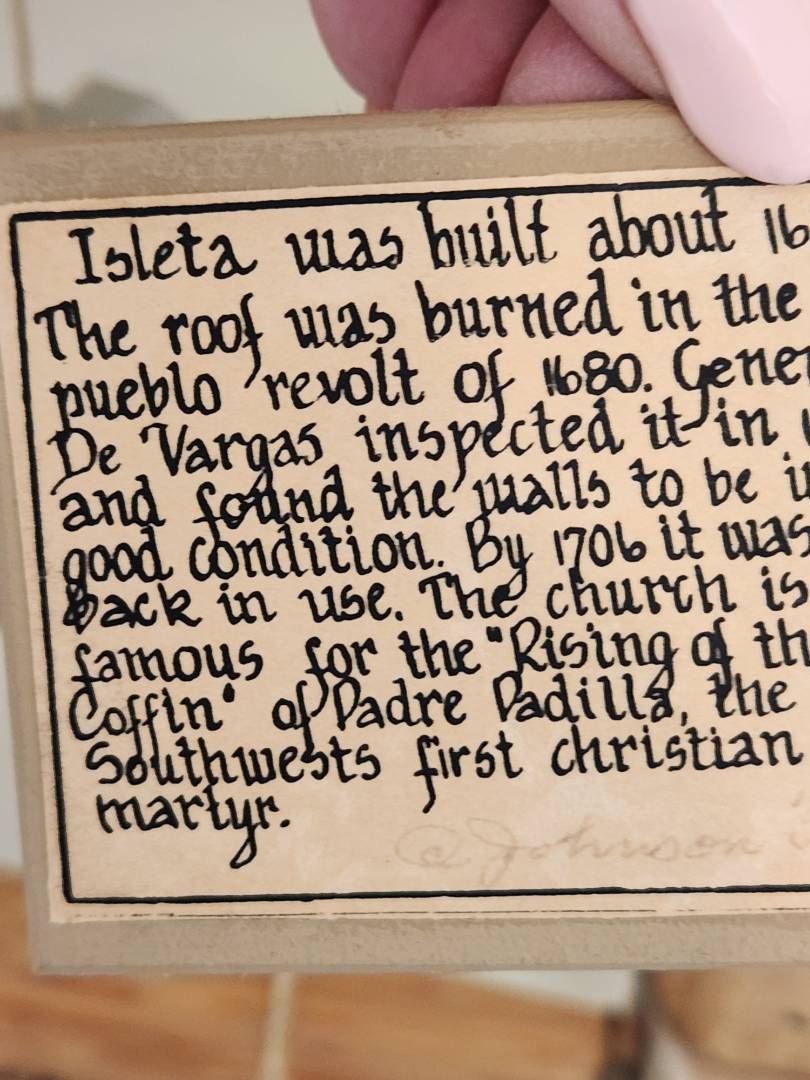 Isleta was built about 16
The roof was burned in the
pueblo revolt of 1680. Gener
De Vargas inspected it in
and found the walls to be i
good condition. By 1706 it was
back in use. The church is
famous for the "Rising of th
Coffin" of Padre Padilla, the
Southwests first christian
martyr.
© Johnson